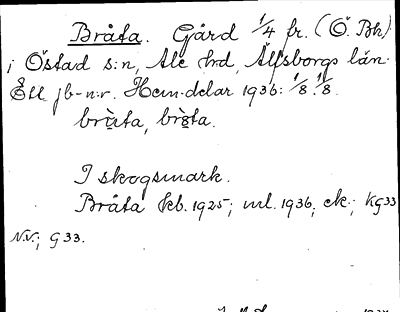 Bråta. Gård 1/4 fr. (Ö. Bk)
i Östad s:n, Ale hd, Älfsborgs län.
Ett jb-n:r. Hem.delar 1936: 1/8. 1/8.
I skogsmark.
Bråta kb. 1925; ml. 1936; ek.; KG33
N.V.; G33.